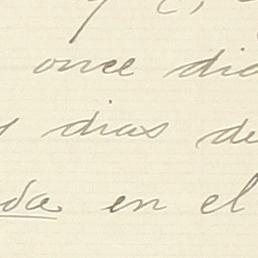 once dia
dias de
da en el